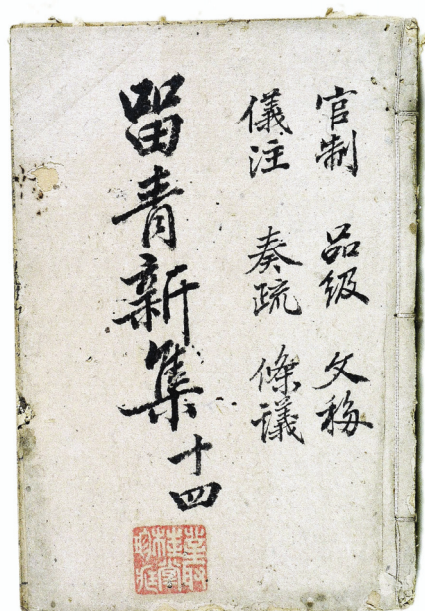 官制 品級 文移
儀注 奏疏 條議
留青新集十四